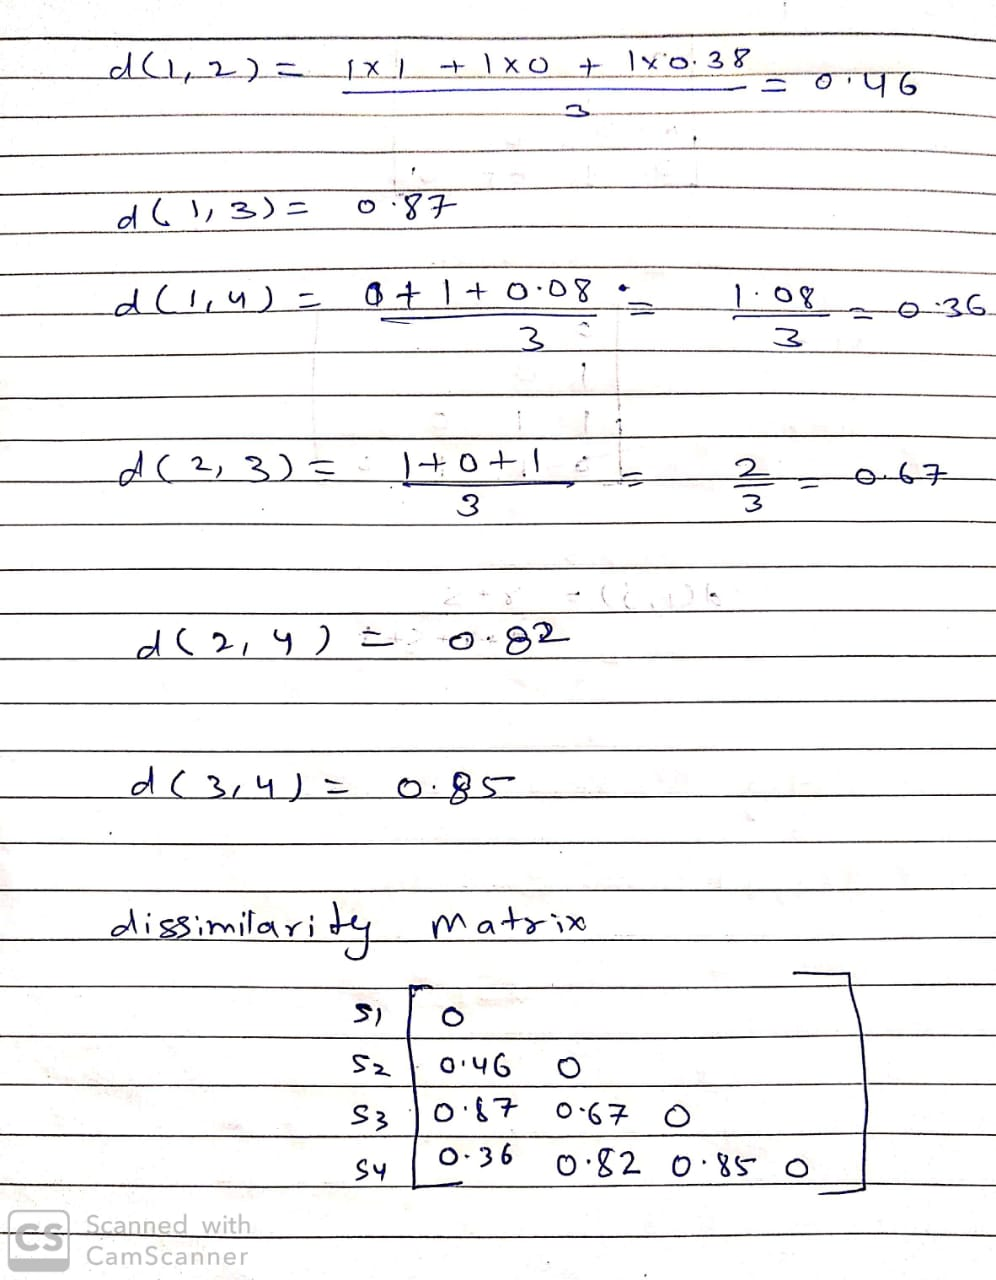 d(1,2) = 1×1 + 1×0 + 1×0.38 / 3 = 0.46
d(1,3) = 0.87
d(1,4) = 0 + 1 + 0.08 / 3 = 1.08 / 3 = 0.36
d(2,3) = 1+0+1 / 3 = 2 / 3 = 0.67
d(2,4) = 0.82
d(3,4) = 0.85
dissimilarity matrix
S1 0
S2 0.46 0
S3 0.87 0.67 0
S4 0.36 0.82 0.85 0
CS Scanned with
CamScanner